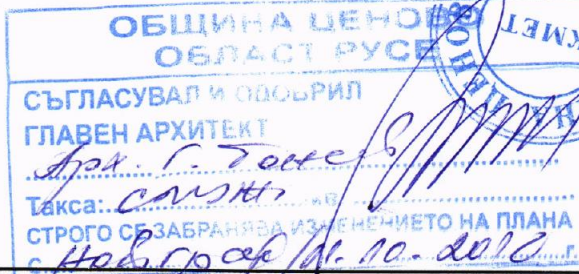 ОБЩИНА ЦЕНОВО
ОБЛАСТ РУСЕ
КМЕТ
СЪГЛАСУВАЛ И ОДОБРИЛ
ГЛАВЕН АРХИТЕКТ
Арх. Г.
Такса:
СТРОГО СЕ ЗАБРАНЯВА ИЗМЕНЕНИЕТО НА ПЛАНА
С. Новград 10. 2012 г.